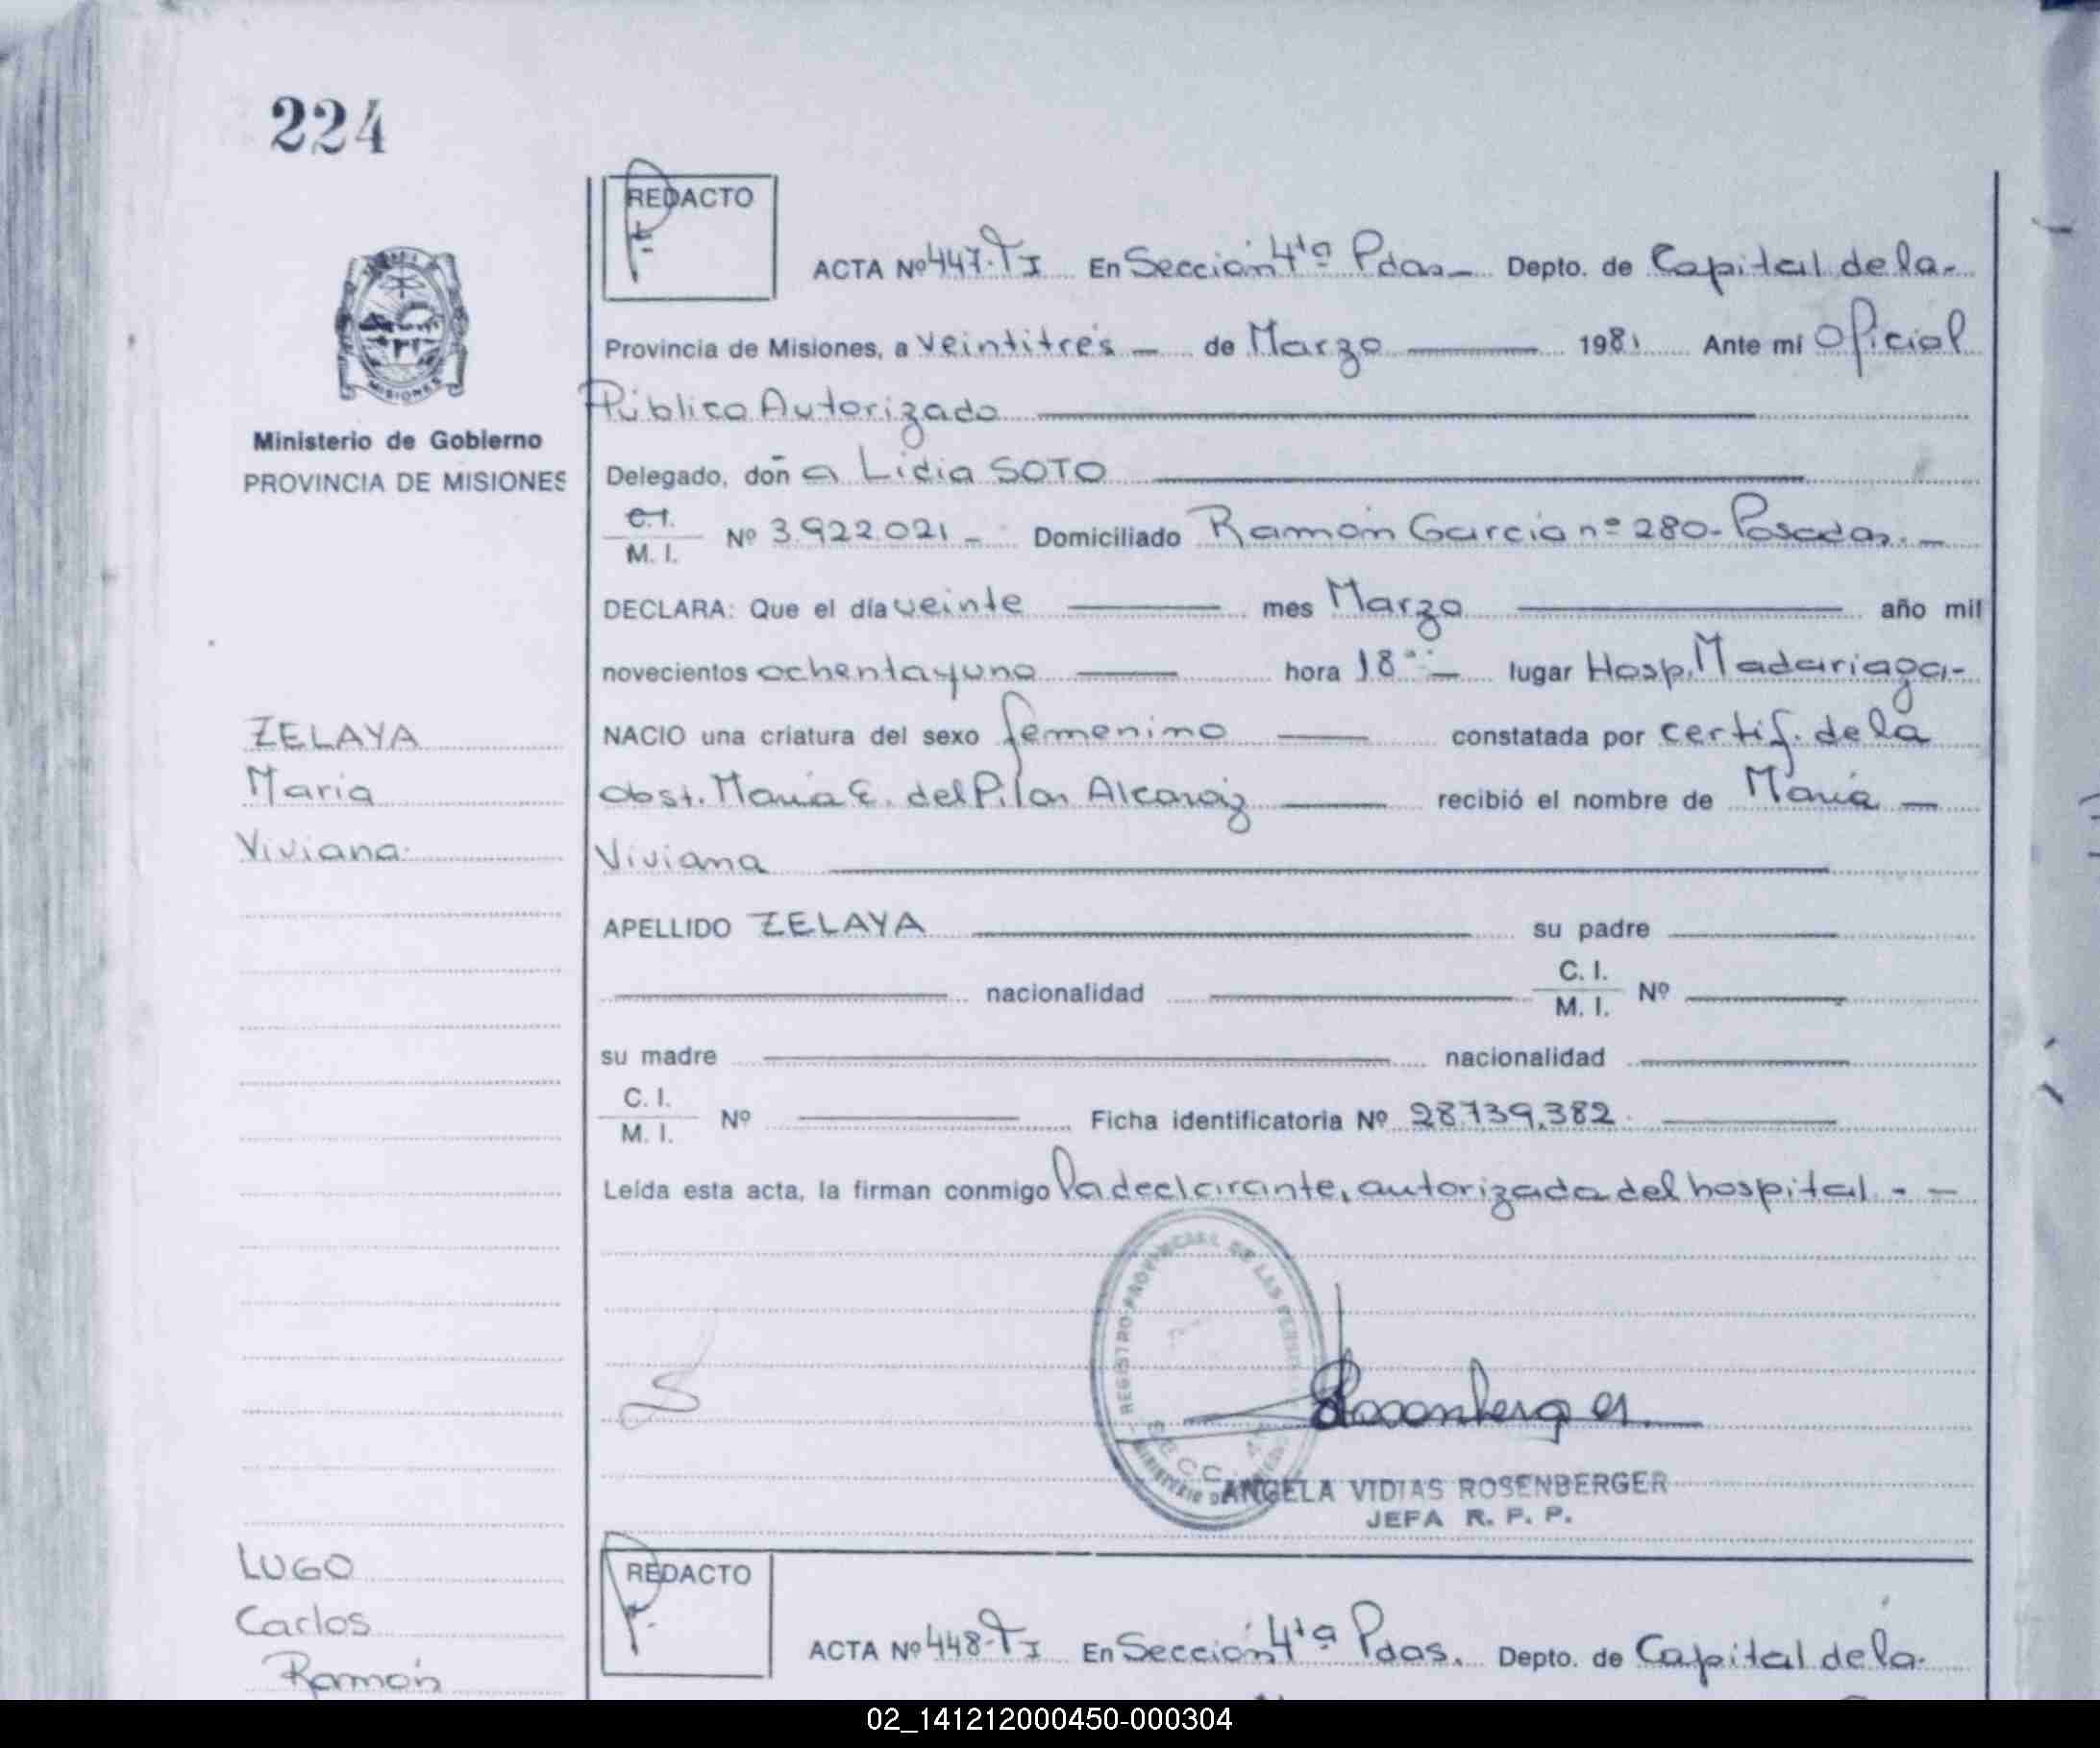 224
REDACTO
ACTA Nº 447-TI En Sección 4ta Pdas- Depto. de Capital de la-
Provincia de Misiones, a veintitrés - de Marzo 1981 Ante mi Oficial
Público Autorizado
Ministerio de Gobierno
PROVINCIA DE MISIONES
Delegado, doña Lidia SOTO
C.I. M. I. Nº 3.922.021 - Domiciliado Ramón García nº 280-Posadas.-
DECLARA: Que el día veinte mes Marzo año mil
novecientos ochenta y uno hora 18 - lugar Hosp. Madariaga-
ZELAYA
María
Viviana
NACIO una criatura del sexo femenino constatada por certif. de la
obst. María E. del Pilar Alcaraz recibió el nombre de María -
Viviana
APELLIDO ZELAYA su padre
nacionalidad C. I. M. I. Nº
su madre nacionalidad
C. I. M. I. Nº Ficha identificatoria Nº 28.739.382
Leída esta acta, la firman conmigo la declarante, autorizada del hospital - -
REGISTRO PROVINCIAL DE LAS
Rosenberger
ANGELA VIDIAS ROSENBERGER
JEFA R. P. P.
LUGO
Carlos
Ramón
REDACTO
ACTA Nº 448-TI En Sección 4ta Pdas. Depto. de Capital de la.
02_141212000450-000304